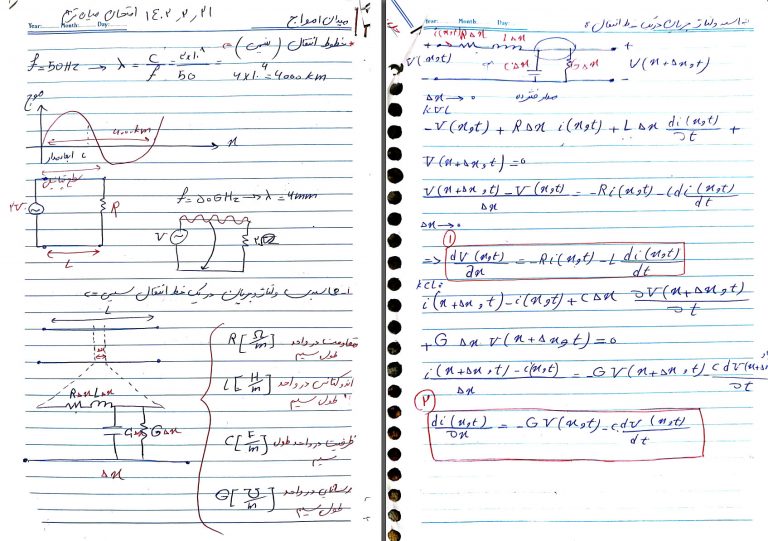 Year: Month: Day:
میدان امواج ۱۴۰۲,۲,۲۱ امتحان میان ترم
* خطوط انتقال (سیمی) :
f = 50Hz → λ = c/f = ۲x1۰^8/50 = 4x1۰^4 = 4000km
موج
4000km
x
2V
R
L
f = 50GHz → λ = 4mm
V
۱- محاسبه ولتاژ و جریان در یک خط انتقال سیمی :
L
Δx
RΔx LΔx
CΔx GΔx
Δx
R [Ω/m] مقاومت در واحد طول سیم
L [H/m] اندوکتانس در واحد طول سیم
C [F/m] ظرفیت در واحد طول سیم
G [℧/m] رسانایی در واحد طول سیم
Year: Month: Day:
محاسبه ولتاژ جریان در یک خط انتقال :
i(x,t) RΔx LΔx
+ +
V(x,t) CΔx GΔx V(x+Δx,t)
- -
Δx → 0 مدار فشرده
KVL
-V(x,t) + RΔx i(x,t) + LΔx di(x,t)/∂t +
V(x+Δx,t) = 0
V(x+Δx,t) - V(x,t)/Δx = -Ri(x,t) - L di(x,t)/dt
Δx → 0
1
=> dV(x,t)/dx = -Ri(x,t) - L di(x,t)/dt
KCL:
i(x+Δx,t) - i(x,t) + CΔx ∂V(x+Δx,t)/∂t
+G Δx V(x+Δx,t) = 0
i(x+Δx,t) - i(x,t)/Δx = -GV(x+Δx,t) - C dV(x+Δx/∂t
۲
di(x,t)/∂x = -GV(x,t) - C dV(x,t)/dt